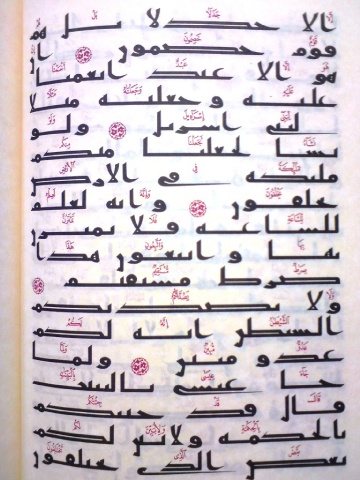 الا جدلا بل هم
قوم خصمون ان
هو الا عبد انعمنا
عليه و جعلنه مثلا
لبني اسريل ولو
نشا لجعلنا منكم
مليكه في الارض
يخلفون وانه لعلم
للساعه فلا تمترن
بها و اتبعون هذا
صرط مستقيم
ولا يصدنكم
الشيطن انه لكم
عدو مبين ولما
جا عيسى بالبينت
قال قد جيتكم
بالحكمه ولابين لكم
بعض الذي تختلفون